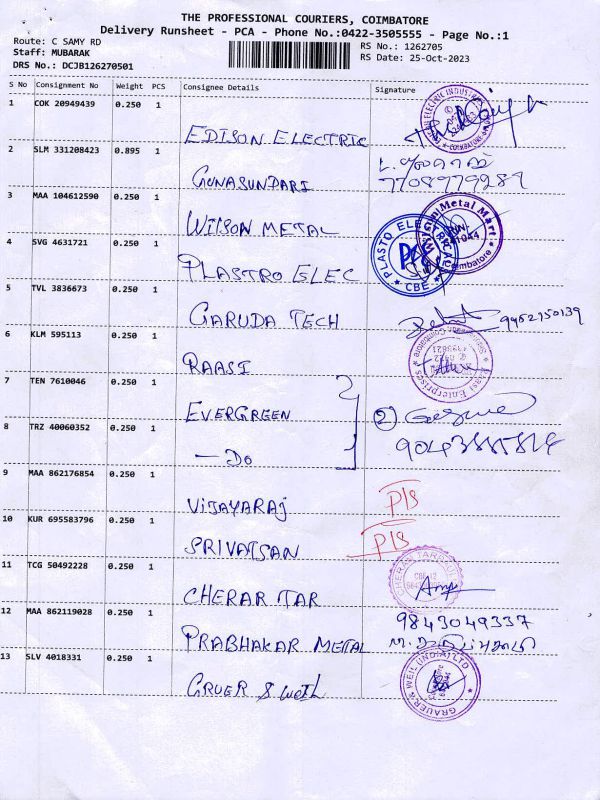 THE PROFESSIONAL COURIERS, COIMBATORE
Delivery Runsheet - PCA - Phone No.:0422-3505555 - Page No.:1
Route: C SAMY RD
Staff: MUBARAK
DRS No.: DCJB126270501
RS No.: 1262705
RS Date: 25-Oct-2023
S No Consignment No Weight PCS Consignee Details Signature
1 COK 20949439 0.250 1 EDISON ELECTRIC
2 SLM 331208423 0.895 1 GUNASUNDARI
7708979289
3 MAA 104612590 0.250 1 WILSON METAL
Metal Mart
Coimbatore
4 SVG 4631721 0.250 1 PLASTRO ELEC
PLASTO ELECTRICAL
CBE
5 TVL 3836673 0.250 1 GARUDA TECH
9952150139
6 KLM 595113 0.250 1 RAASI
Raasi Enterprises
7 TEN 7610046 0.250 1 EVERGREEN
8 TRZ 40060352 0.250 1 — DO
2
9 MAA 862176854 0.250 1 VIJAYARAJ P/S
10 KUR 695583796 0.250 1 SRIVATSAN P/S
11 TCG 50492228 0.250 1 CHERAR TAR
12 MAA 862119028 0.250 1 PRABHAKAR METAL
9843049337
13 SLV 4018331 0.250 1 GRUER & WEIL
GRAUER & WEIL (INDIA) LTD